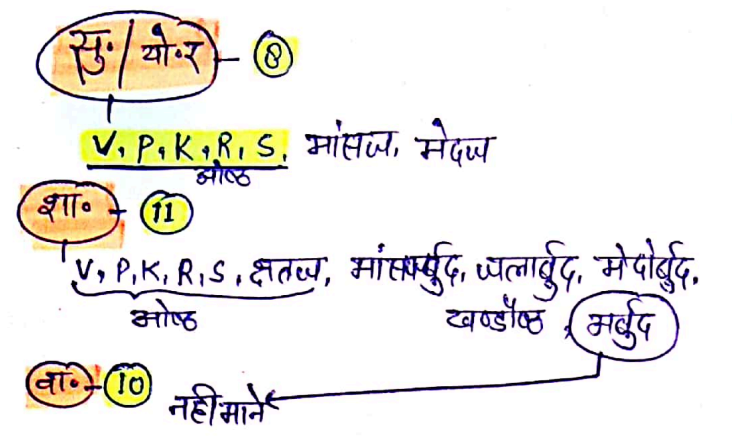 सु॰/यो॰र - 8
V, P, K, R, S, मांसज, मेदज
ओष्ठ
शा॰ - 11
V, P, K, R, S, क्षतज, मांसार्बुद, जलार्बुद, मेदोर्बुद,
ओष्ठ खण्डौष्ठ, अर्बुद
वा॰ - 10
नही माने